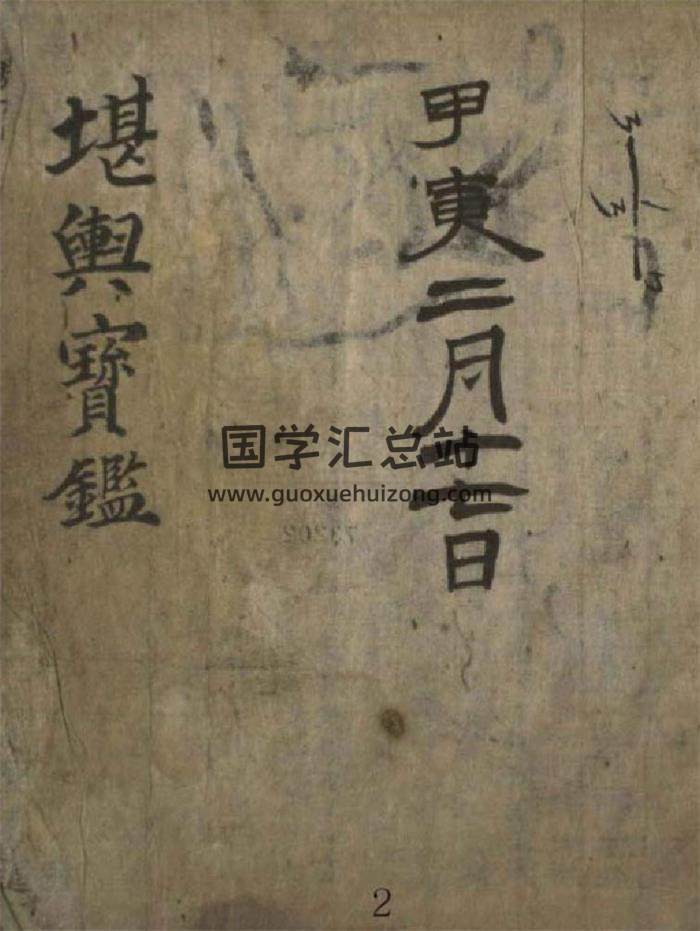 甲寅二月十七日
堪輿寶鑑
国学汇总站
www.guoxuehuizong.com
73202
2